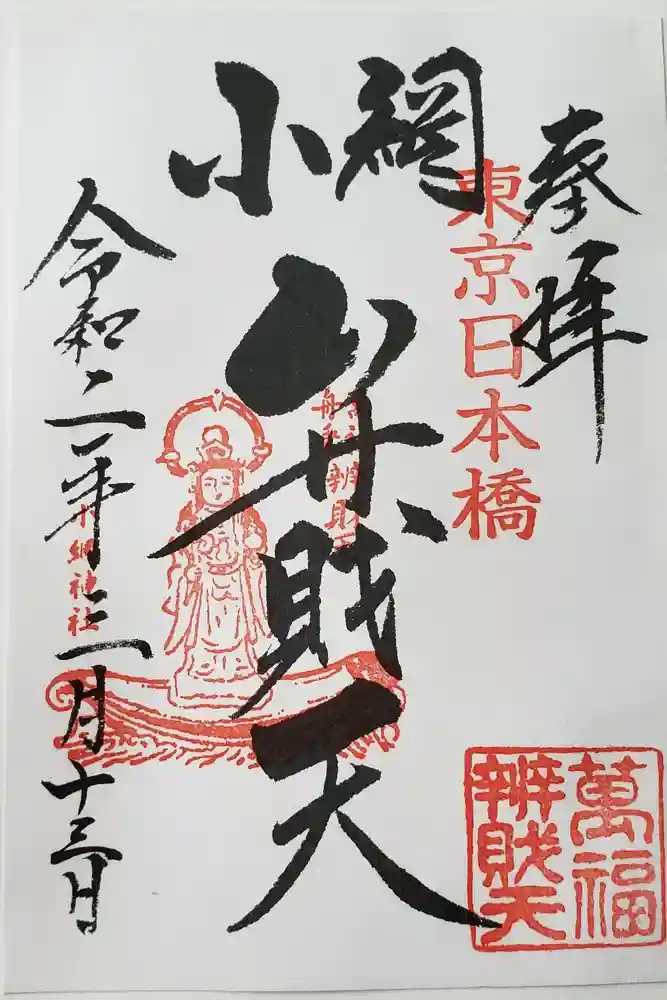 奉拝
東京日本橋
小網
弁財天
令和二年二月十三日
網神社
萬福
辨財天